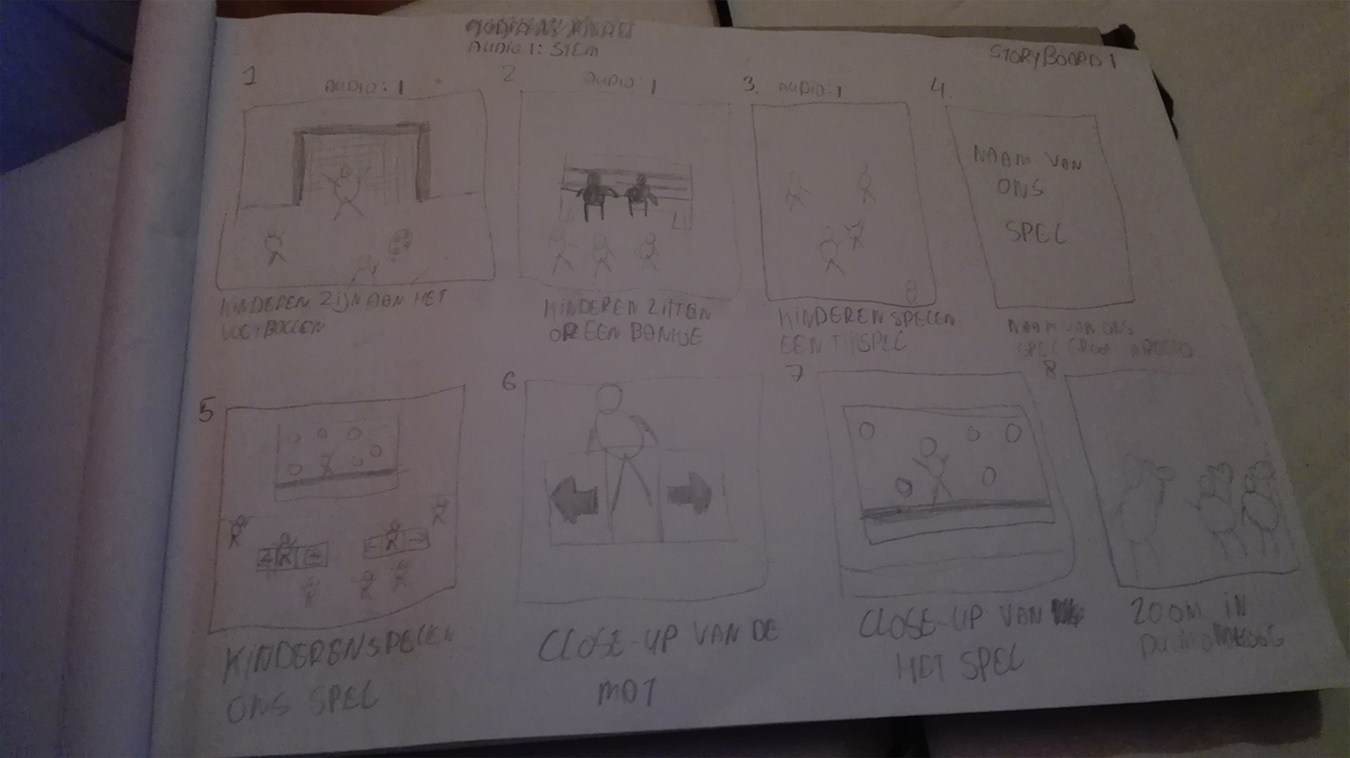 AUDIO 1: STEM
STORYBOARD 1
1
AUDIO: 1
KINDEREN ZIJN AAN HET
VOETBALLEN
2
AUDIO 1
KINDEREN ZITTEN
OP EEN BANKJE
3.
AUDIO: 1
KINDEREN SPELEN
EEN SPEL
4.
NAAM VAN
ONS
SPEL
NAAM VAN ONS
SPEL GROOT
5
KINDEREN SPELEN
ONS SPEL
6
CLOSE-UP VAN DE
MAT
7
CLOSE-UP VAN
HET SPEL
8
ZOOM IN